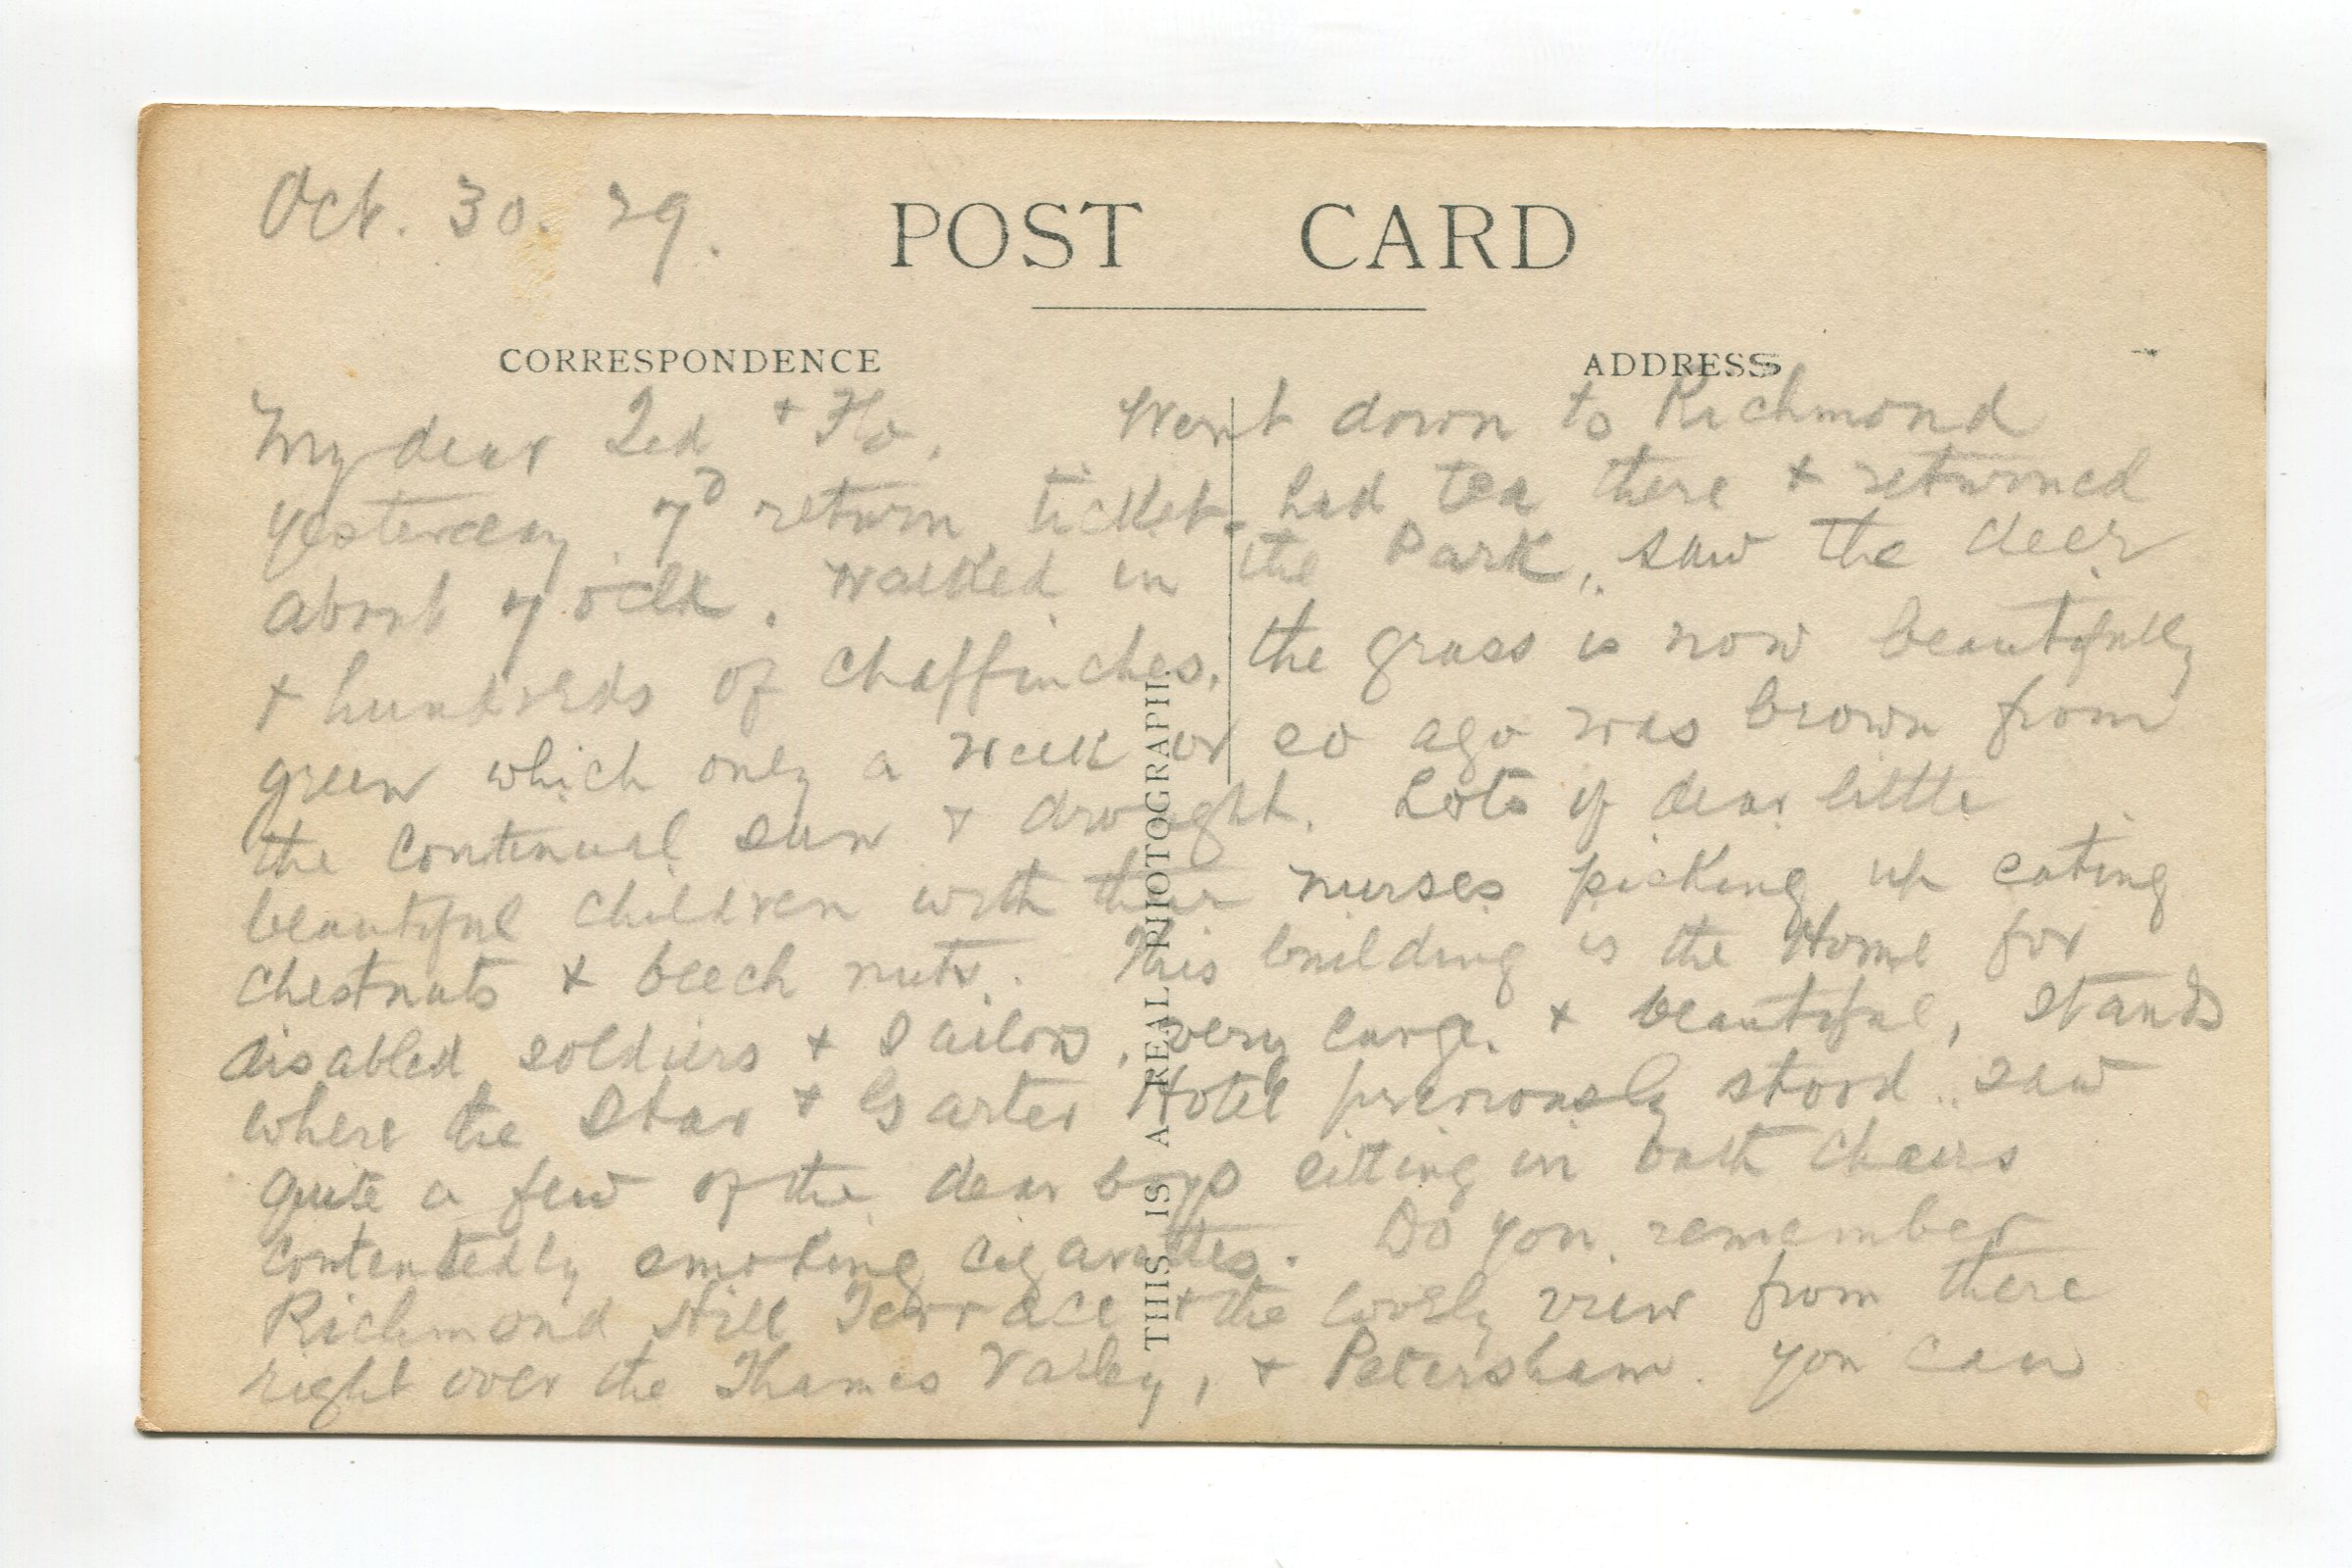 Oct. 30. 29.
POST CARD
CORRESPONDENCE
ADDRESS
My dear Ted + Flo, Went down to Richmond
yesterday 7D return ticket. had tea there + returned
about 7 oclk. walked in the Park, saw the deer
+ hundreds of chaffinches, the grass is now beautifully
green which only a week or so ago was brown from
the continual sun + drought. Lots of dear little
beautiful children with their nurses picking up eating
chestnuts + beech nuts. This building is the Home for
disabled soldiers + sailors, very large + beautiful, stands
where the Star + Garter Hotel previously stood. saw
quite a few of the dear boys sitting in bath chairs
contentedly smoking cigarettes. Do you remember
Richmond Hill Terrace + the lovely view from there
right over the Thames Valley, + Petersham. you can
THIS IS A REAL PHOTOGRAPH.